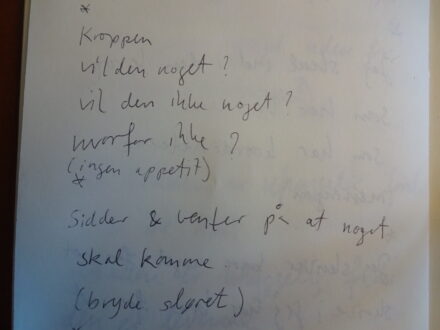 *
Kroppen
vil den noget?
vil den ikke noget?
hvorfor ikke?
(ingen appetit)
*
Sidder & venter på at noget
skal komme
(bryde sløret)